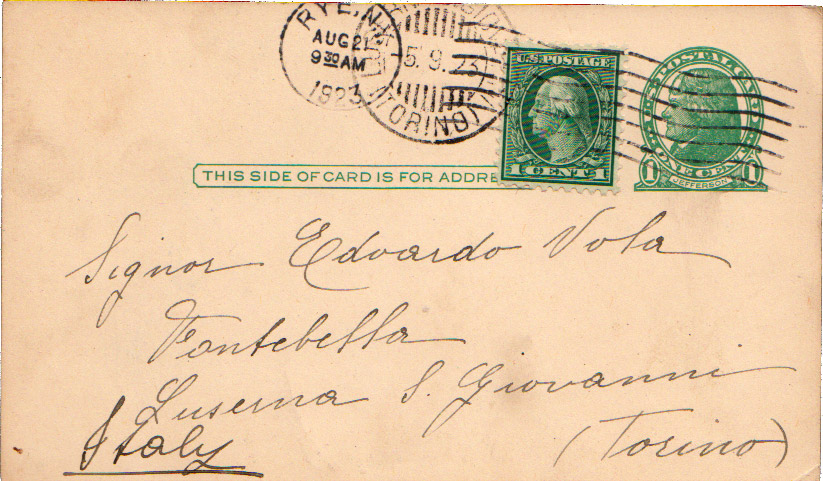 RYE, N.Y.
AUG 21
9 30 AM
1923
5.9.23
(TORINO)
U.S. POSTAGE
1 CENT 1
U.S. POSTAL CARD
ONE CENT
1 JEFFERSON 1
THIS SIDE OF CARD IS FOR ADDRE
Signor Edoardo Vola
Fontebella
Luserna S. Giovanni
Italy (Torino)